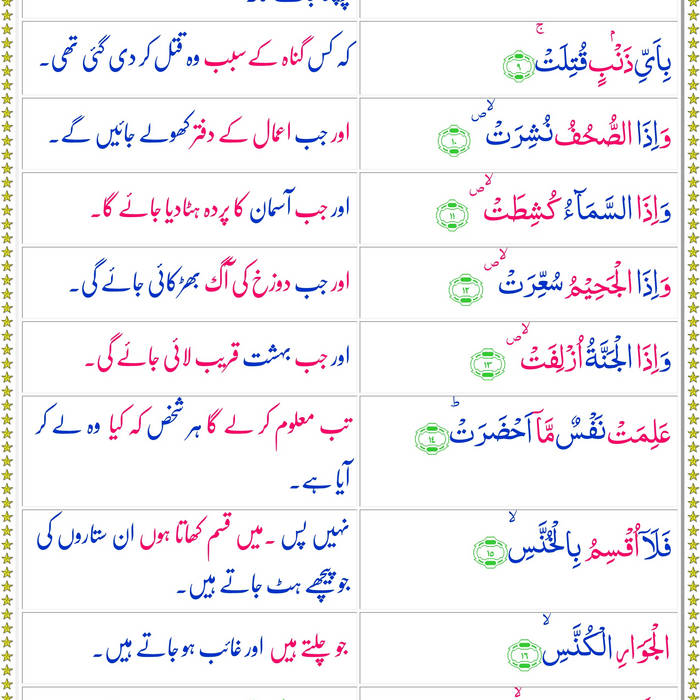 بِاَيِّ ذَنْۢبٍ قُتِلَتْۚ ۹
کہ کس گناہ کے سبب وہ قتل کر دی گئی تھی۔
وَاِذَا الصُّحُفُ نُشِرَتْ۪ۙ ۱۰
اور جب اعمال کے دفتر کھولے جائیں گے۔
وَاِذَا السَّمَآءُ كُشِطَتْ۪ۙ ۱۱
اور جب آسمان کا پردہ ہٹادیا جائے گا۔
وَاِذَا الْجَحِيْمُ سُعِّرَتْ۪ۙ ۱۲
اور جب دوزخ کی آگ بھڑکائی جائے گی۔
وَاِذَا الْجَنَّةُ اُزْلِفَتْ۪ۙ ۱۳
اور جب بہشت قریب لائی جائے گی۔
عَلِمَتْ نَفْسٌ مَّاۤ اَحْضَرَتْؕ ۱۴
تب معلوم کر لے گا ہر شخص کہ کیا وہ لے کر
آیا ہے۔
فَلَاۤ اُقْسِمُ بِالْخُنَّسِۙ ۱۵
نہیں پس ۔میں قسم کھاتا ہوں ان ستاروں کی
جو پیچھے ہٹ جاتے ہیں۔
الْجَوَارِ الْكُنَّسِۙ ۱۶
جو چلتے ہیں اور غائب ہو جاتے ہیں۔